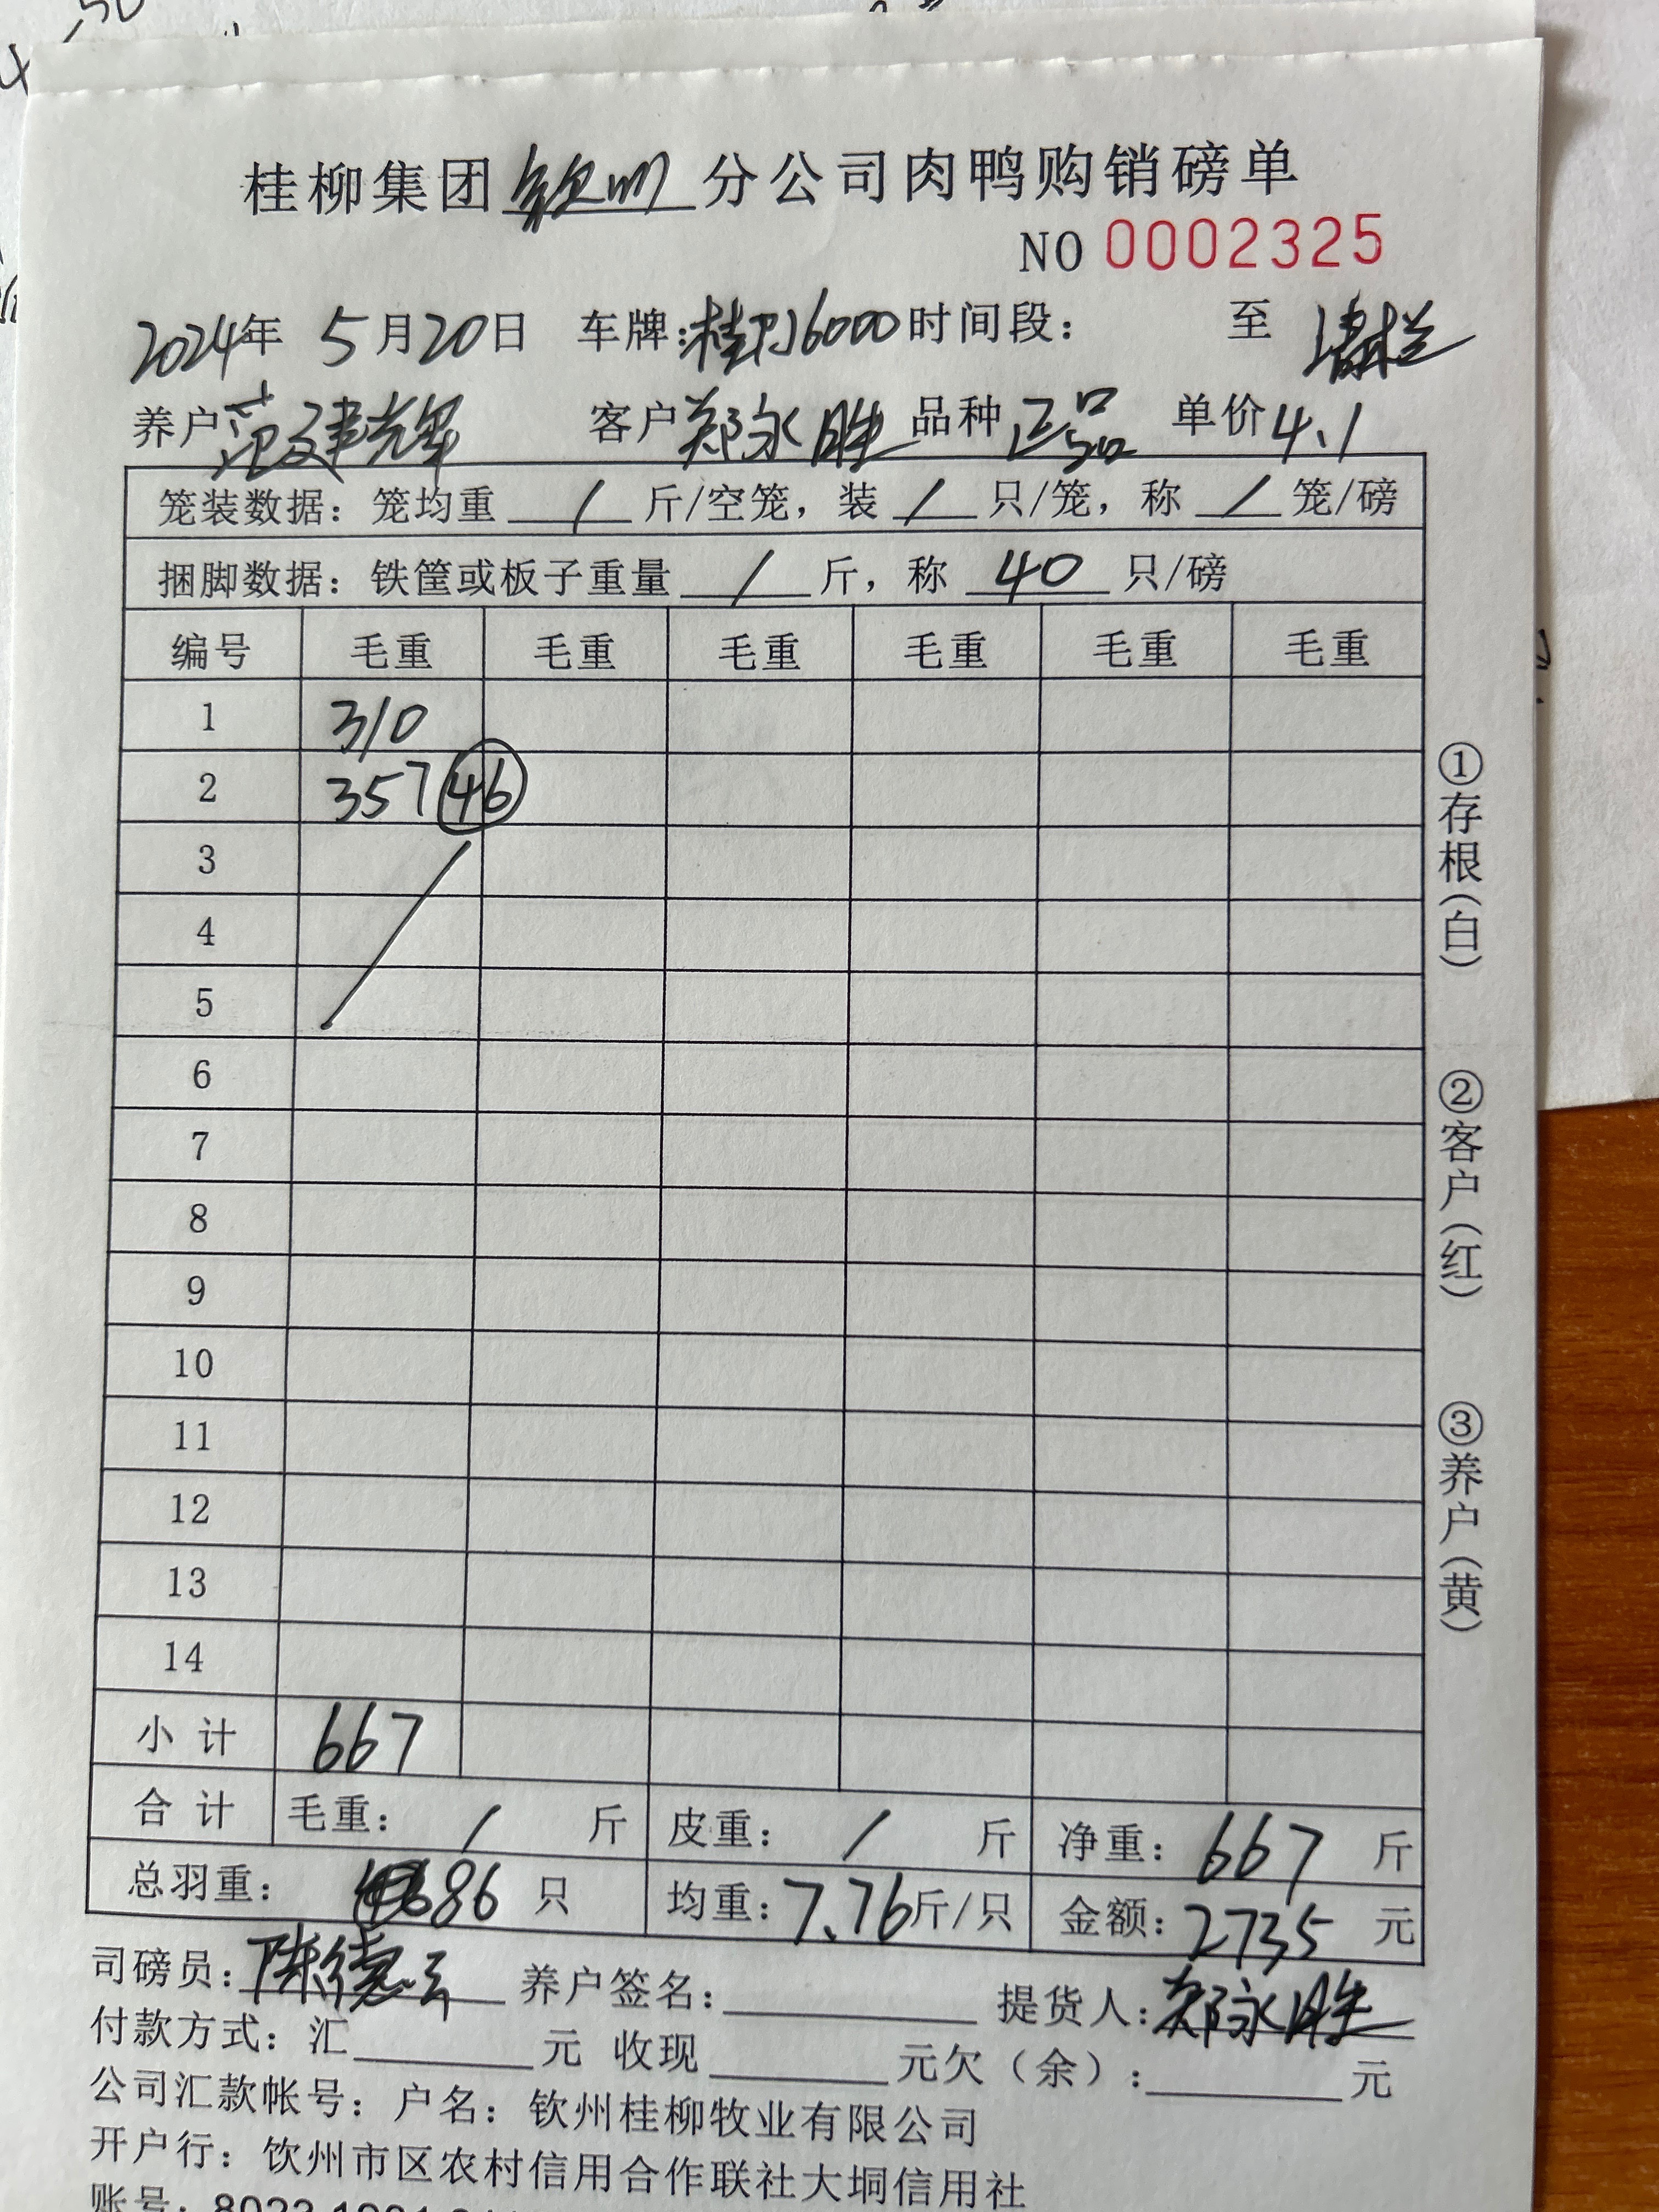 桂柳集团钦州分公司肉鸭购销磅单
NO 0002325
2024年 5月20日 车牌:桂 J6000 时间段: 至 清栏
养户 范建辉 客户 郑永胜 品种 正品 单价 4.1
笼装数据: 笼均重 / 斤/空笼, 装 / 只/笼, 称 / 笼/磅
捆脚数据: 铁筐或板子重量 / 斤, 称 40 只/磅
编号 毛重 毛重 毛重 毛重 毛重 毛重
1 310
2 357 46
3
4
5
6
7
8
9
10
11
12
13
14
小计 667
合计 毛重: / 斤 皮重: / 斤 净重: 667 斤
总羽重: 86 只 均重: 7.76斤/只 金额: 2735 元
司磅员: 陈德云 养户签名: 提货人: 郑永胜
付款方式: 汇 元 收现 元欠(余): 元
公司汇款帐号: 户名: 钦州桂柳牧业有限公司
开户行: 钦州市区农村信用合作联社大垌信用社
账号:
①存根(白)
②客户(红)
③养户(黄)